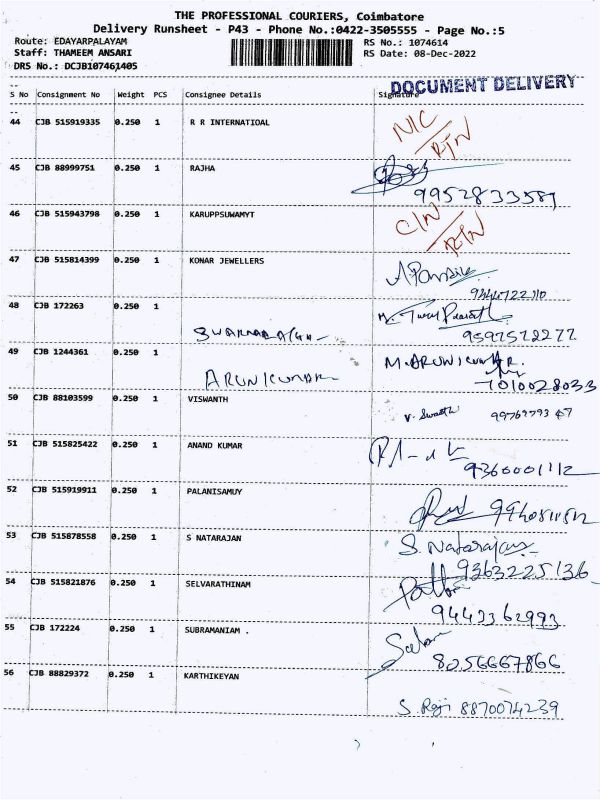 THE PROFESSIONAL COURIERS, Coimbatore
Delivery Runsheet - P43 - Phone No.:0422-3505555 - Page No.:5
Route: EDAYARPALAYAM RS No.: 1074614
Staff: THAMEEM ANSARI RS Date: 08-Dec-2022
DRS No.: DCJB107461405
DOCUMENT DELIVERY
S No Consignment No Weight PCS Consignee Details Signature
44 CJB 515919335 0.250 1 R R INTERNATIOAL N/C
RTN
45 CJB 88999751 0.250 1 RAJHA
46 CJB 515943798 0.250 1 KARUPPSUWAMYT
RTN
47 CJB 515814399 0.250 1 KONAR JEWELLERS
48 CJB 172263 0.250 1
9597572277
49 CJB 1244361 0.250 1 ARUNKUMAR M.ARUNKUMAR.
7010028033
50 CJB 88103599 0.250 1 VISWANTH
51 CJB 515825422 0.250 1 ANAND KUMAR
9360001112
52 CJB 515919911 0.250 1 PALANISAMUY
53 CJB 515878558 0.250 1 S NATARAJAN S. Natarajan
9363225136
54 CJB 515821876 0.250 1 SELVARATHINAM
9442362993
55 CJB 172224 0.250 1 SUBRAMANIAM .
8056667866
56 CJB 88829372 0.250 1 KARTHIKEYAN
S. Raji 8870074239